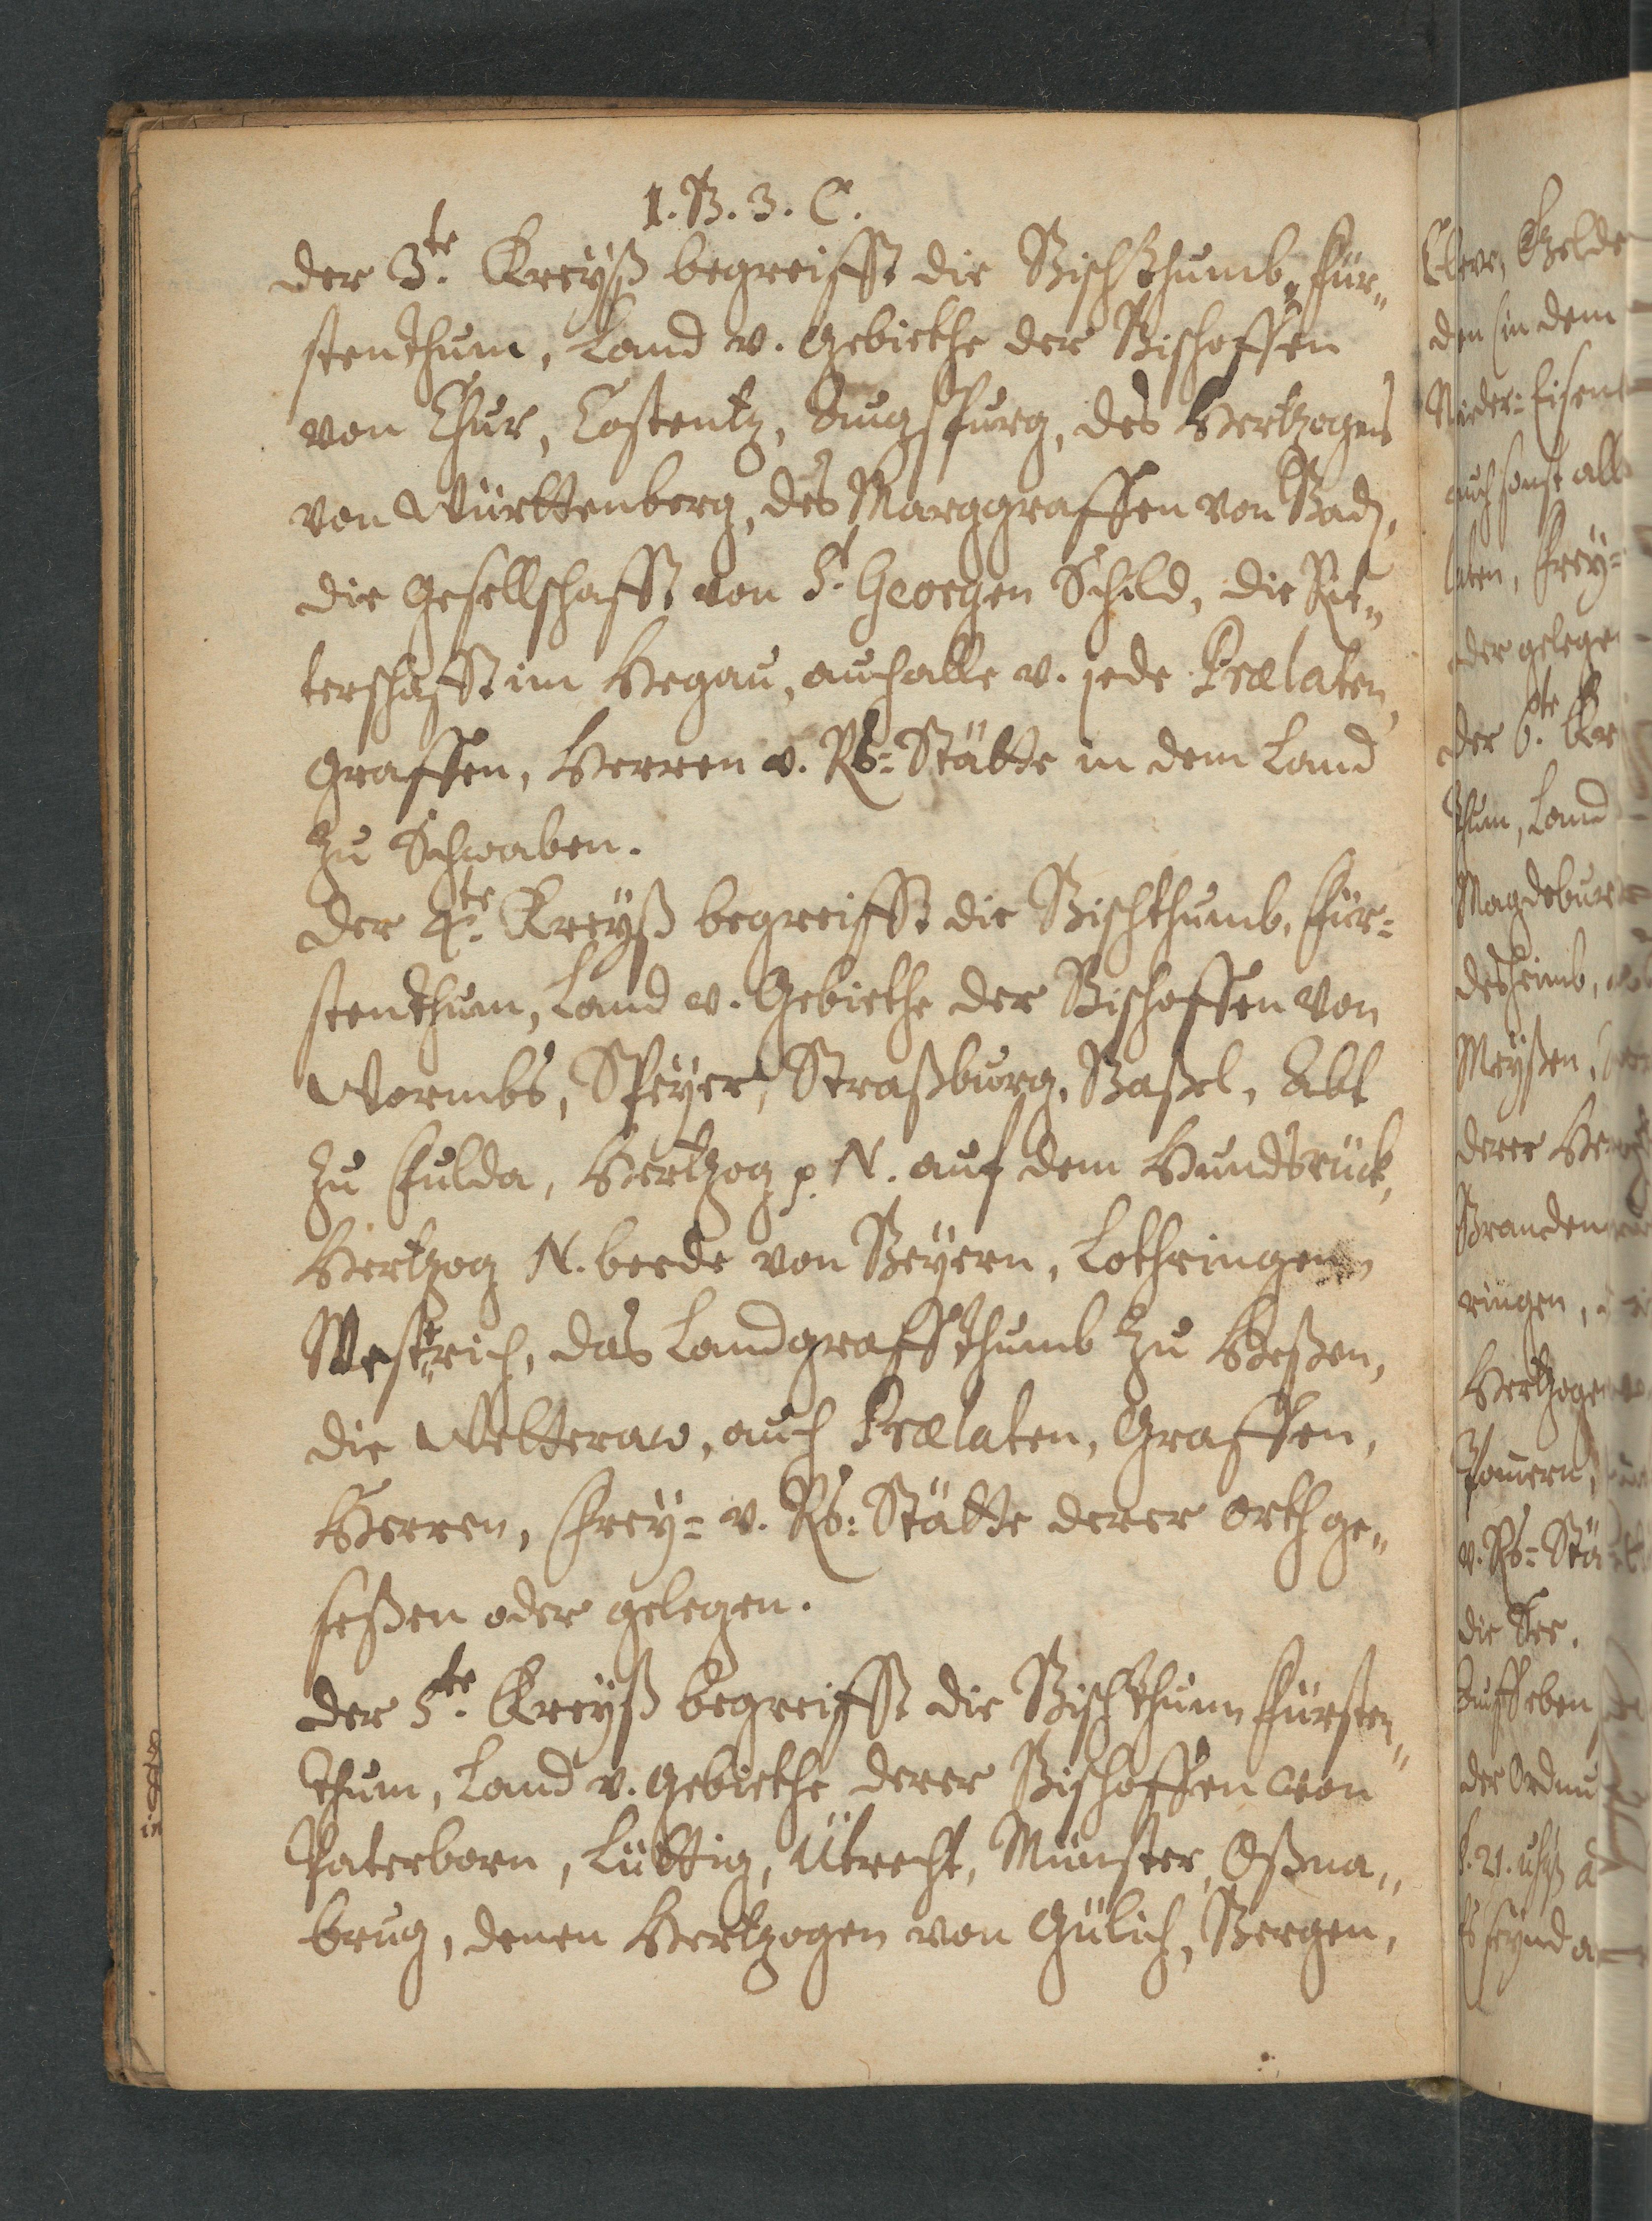 1. B. 3. C.
der 3.te Kreyß begreifft die Bischthumb, für„
stenthum, Land v. Gebiethe der Bischoffen
von Chur, Costentz, Augspurg, des Hertzogens
von Württenberg, des Marggraffen von Bad,
die Gesellschafft von St. Georgen Schild, die Rit„
terschafft im Hegau, auch alle v. jede Prælaten,
Graffen, Herren v. Rs=Stätte in dem Land
zu Schwaben.
der 4.te Kreyß begreifft die Bischthumb, für=
stenthum, Land v. Gebiethe der Bischoffen von
Wormbs, Speyer, Straßburg, Baßel, Abt
zu Fulda, Hertzog p. N. auf dem Hundsrück,
Hertzog N. beede von Beyern, Lothringen
Westrich, das Landgraffthumb zu Heßen,
die Wetteraw, auch Prælaten, Graffen,
Herren, Frey= v. Rs: Stätte derer orth ge„
seßen oder gelegen.
der 5.te Kreyß begreifft die Bischthum fürsten„
thum, Land v. Gebiethe derer Bischoffen von
Paterborn, Lüttig, Ütrecht, Münster, Oßna„
brug, denen Hertzogen von Gülich, Bergen,
Cleve, Gelde
den (in dem
Nieder= Eisen
auch sonst all
laten, Frey=
oder gelege
der 6.te Kr
thum, Land
Magdebur
desheimb,
Meyßen,
derer He
Branden
ringen,
Hertzoge
Pomern,
v. Rs= Stä
die See.
Auff eben
der Ordnu
seynd a